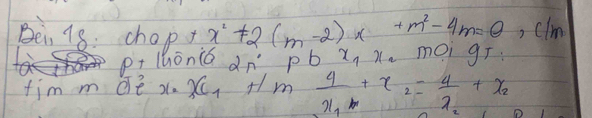 Bài 18: cho pt x² + 2(m-2)x + m² - 4m = 0, c/m
pt luôn có 2n° pb x₁ x₂ mọi gt
tìm m để x₂ x₁ t/m 4/x₁ + x₂ = 4/x₂ + x₂